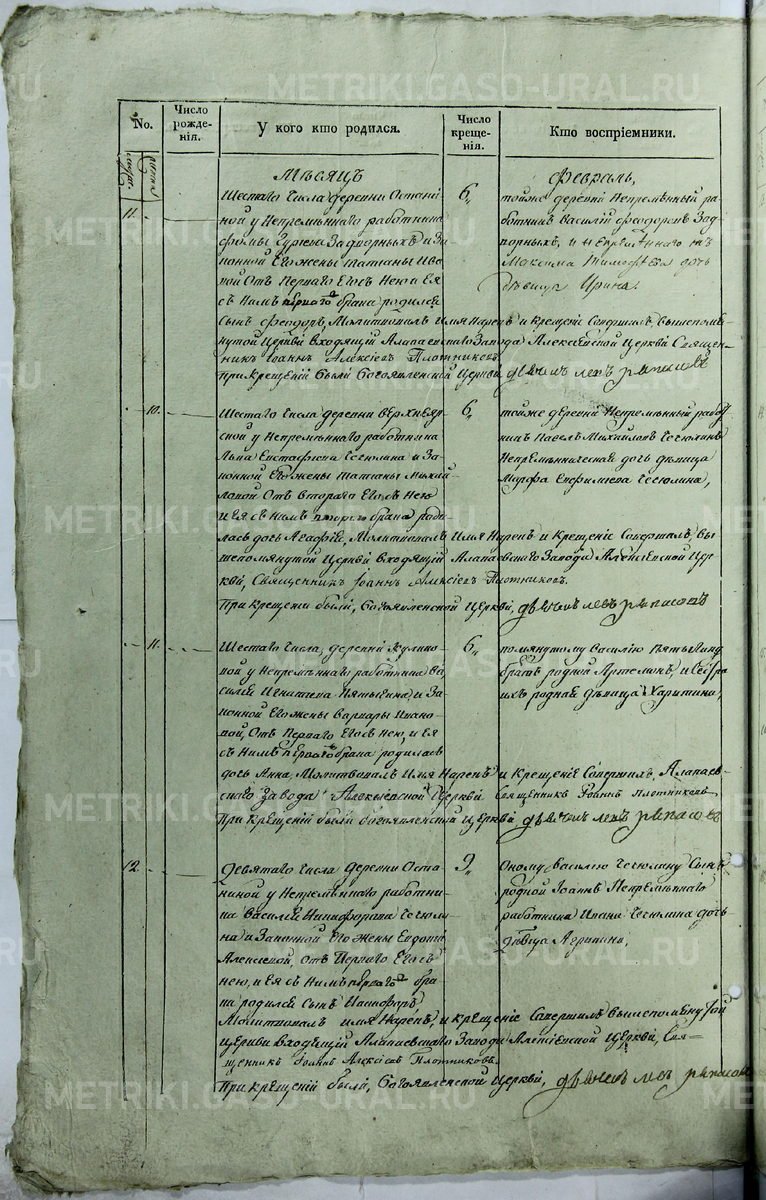 METRIKI.GASO-URAL.RU
No.
Число рожденія.
У кого кто родился.
Число крещенія.
Кто воспріемники.
Мѣсяцъ
Февраль,
11.
Шестаго числа деревни Остани-
ной у Непремѣннаго работника
Фомы Задворныхъ и За-
конной Его жены Татаны Ива
ной Отъ Перваго Его съ Нею и Ея
съ Нимъ перваго брака родился
сынъ Феодоръ, Молитвовалъ Имя Нарекъ и Крещеніе Совершилъ, вышепомя-
нутой Церкви входящій Алапаевскаго Завода Алексіевской Церкви Священ-
никъ Іоаннъ Алексіевъ Плотниковъ
При Крещеніи были Богоявленской Церкви
6,
тойже деревни Непремѣнный ра
ботникъ Василій Феодоровъ Зад
ворныхъ, и
Максима Тимофѣева дочь
дѣвица Ирина.
10.
Шестаго числа деревни Верхнеяр-
ской у Непремѣннаго работника
Льва Евстафіева Чечюлина и За
конной Его жены Татаны Михай-
ловой Отъ втораго Его съ Нею
и Ея съ Нимъ втораго брака роди-
лась дочь Агафія, Молитвовалъ Имя Нарекъ и Крещеніе Совершилъ, вы
шепомянутой Церкви входящій Алапаевскаго Завода Алексіевской Цер
кви, Священникъ Іоаннъ Алексіевъ Плотниковъ.
При крещеніи были, Богоявленской Церкви,
6,
тойже деревни Непремѣнный работ
никъ Павелъ Михайловъ Чечюлинъ
Непремѣнническая дочь дѣвица
Марфа Ефимиева Чечюлина,
11.
Шестаго числа, деревни
вой у Непремѣннаго работника Ва
силія Игнатиева Пятыгина, и За
конной Его жены Варвары Ивано-
вой, Отъ Перваго Его съ Нею, и Ея
съ Нимъ перваго брака родилась
дочь Анна, Молитвовалъ Имя Нарекъ и Крещеніе Совершилъ, Алапаев-
скаго Завода Алексіевской Церкви Священникъ Іоаннъ Плотниковъ
При Крещеніи были Богоявленской Церкви
6,
помянутому Василію
братъ родной Артемонъ, и Сестра
ихъ родная дѣвица Харитина,
12
Девятаго числа деревни Оста
ниной у Непремѣннаго работни-
ка Василія Никифорова Чечюли
на и Законной Его жены Евдокіи
Алексіевой, отъ Перваго Его съ
нею, и Ея съ Нимъ перваго бра
ка родился сынъ Никифоръ
Молитвовалъ имя Нарекъ, и крещеніе Совершилъ вышепомянутой
церкви входящій Алапаевскаго Завода Алексіевской Церкви, Свя-
щенникъ Іоаннъ Алексіевъ Плотниковъ.
При крещеніи были, Богоявленской Церкви,
9,
Оному Василію Чечюлину Сынъ
родной Іоаннъ Непремѣннаго
работника Ивана Чечюлина дочь
дѣвица Агрипина,